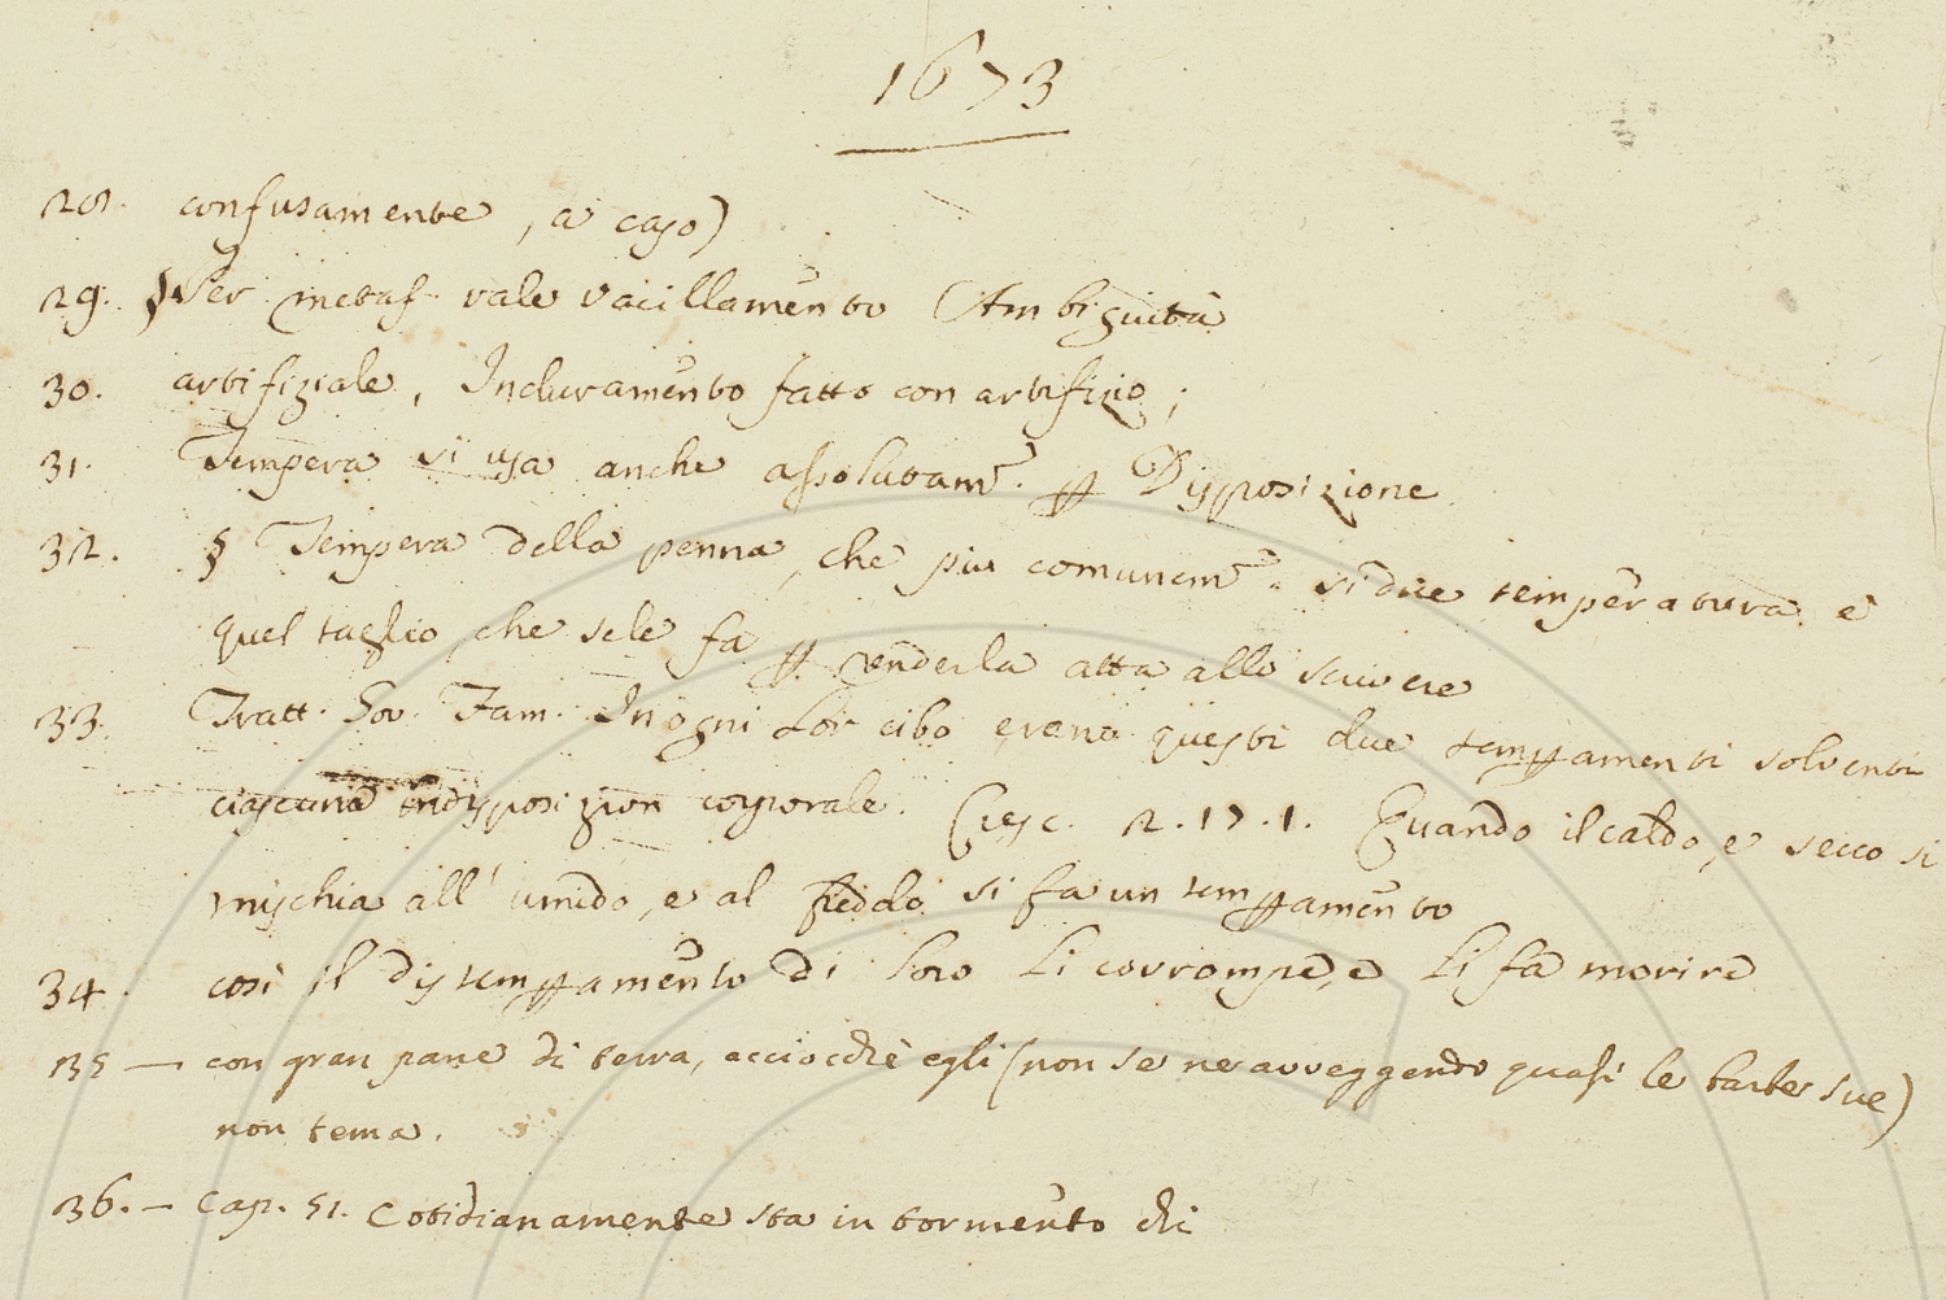 1673
28. confusamente, a caso)
29. § Per metaf. vale vacillamento Ambiguità
30. artifiziale, Induramento fatto con artifizio;
31. Tempera si usa anche assolutam.e ꝑ Disposizione
32. § Tempera della penna, che piu comunem.e si dice temperatura è
quel taglio che sele fa ꝑ renderla atta allo scrivere
33. Tratt. Gov. Fam. In ogni Lor cibo erano questi due temꝑamenti solventi
ciascuna indisposizion corporale. Cresc. 2.17.1. Quando il caldo, e secco si
mischia all' umido, e al freddo si fa un temꝑamento
34. così il distemꝑamento di loro li corrompe, e li fa morire
35 — con gran pane di terra, acciocchè egli (non se ne avveggendo quasi le barbe sue)
non tema.
36. — Cap. 51. Cotidianamente sta in tormento di